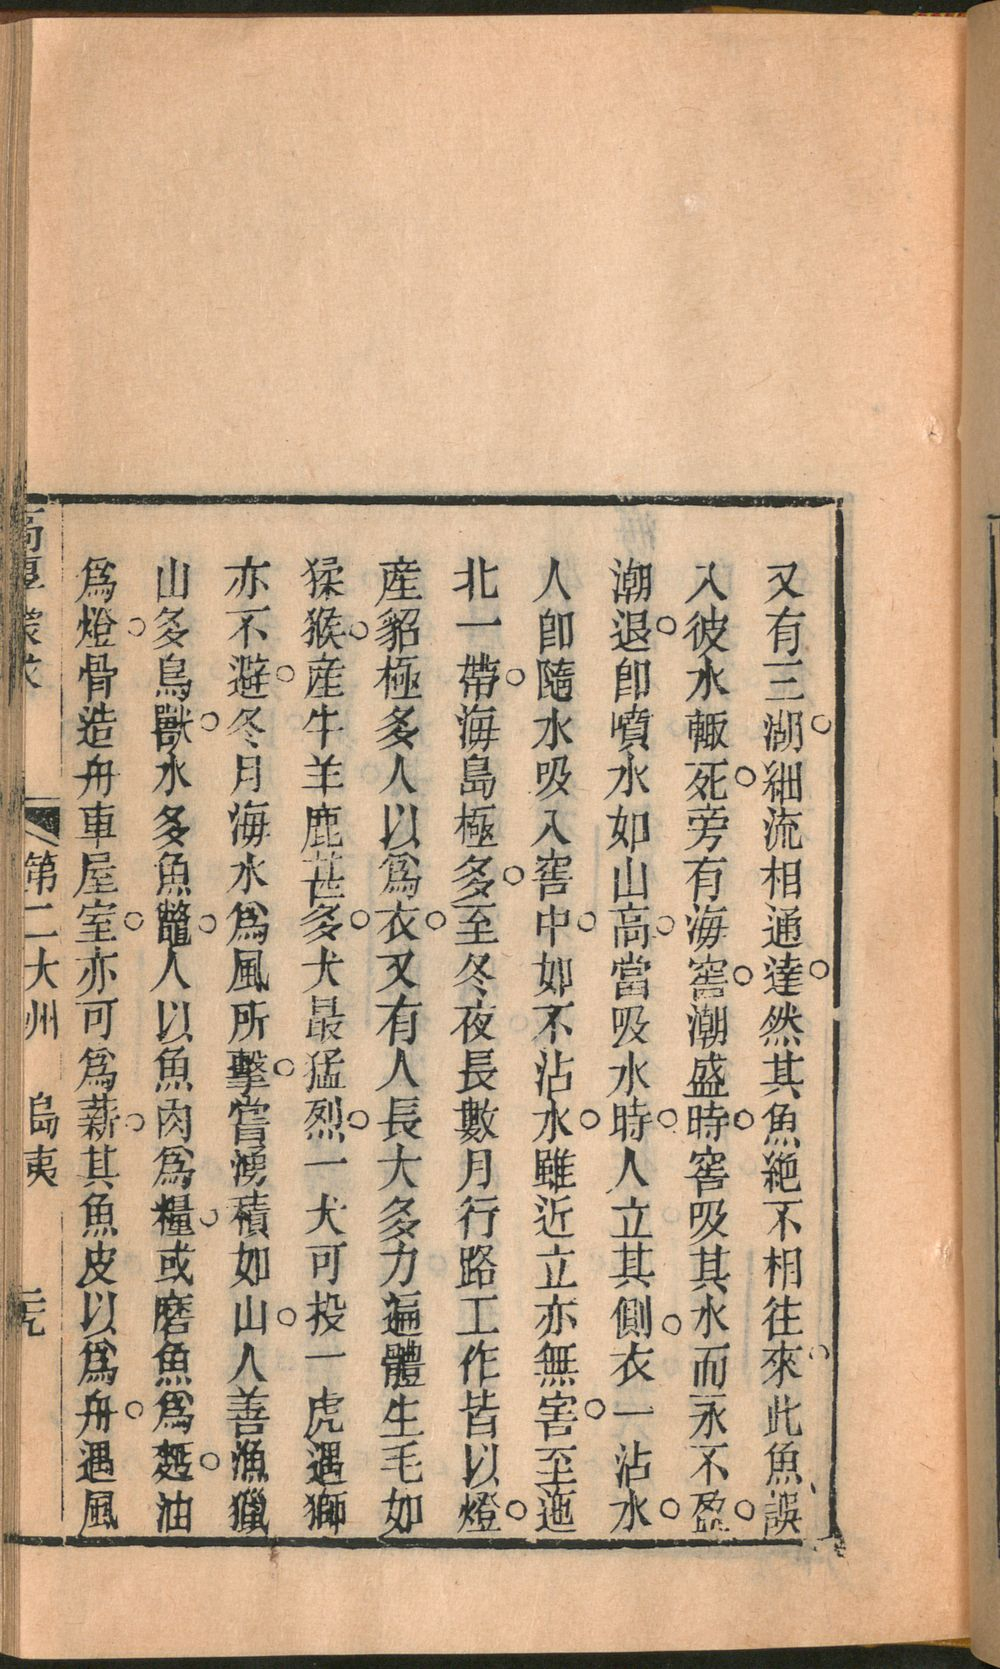 又有三湖細流相通達然其魚絕不相往來此魚誤
入彼水輙死旁有海窖潮盛時窖吸其水而永不盈
潮退卽噴水如山高當吸水時人立其側衣一沾水
人卽隨水吸入窖中如不沾水雖近立亦無害至迤
北一帶海島極多至冬夜長數月行路工作皆以燈
産貂極多人以爲衣又有人長大多力遍體生毛如
猱猴産牛羊鹿甚多犬最猛烈一犬可投一虎遇獅
亦不避冬月海水爲風所擊嘗湧積如山人善漁獵
山多鳥獸水多魚鼈人以魚肉爲糧或磨魚爲麪油
爲燈骨造舟車屋室亦可爲薪其魚皮以爲舟遇風
高厚蒙求 第二大州 島夷